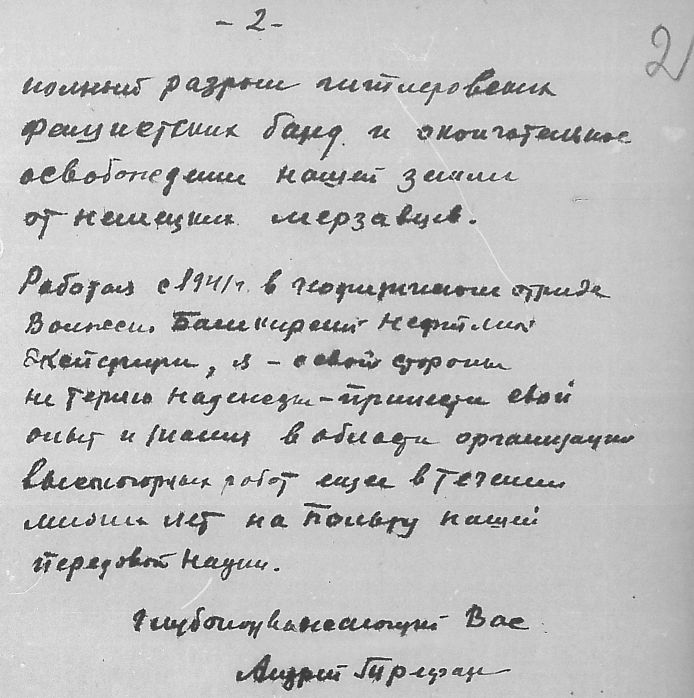 - 2 -
2
полный разгром гитлеровских
фашистских банд и окончательное
освобождение нашей земли
от немецких мерзавцев.
Работая с 1941 г. в геофизическом отряде
Волжско Башкирской нефтяной
экспедиции, я – с своей стороны
не теряю надежды – принести свой
опыт и знания в области организации
высокогорных работ еще в течении
многих лет на пользу нашей
передовой науки.
Глубокоуважающий Вас
Андрей